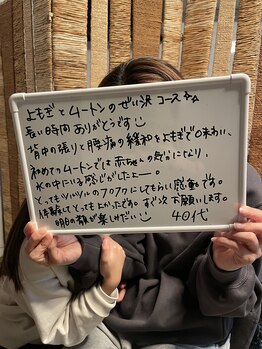 よもぎとムートンのぜい沢コース☆☆
長い時間ありがとうです☺
背中の張りと腰痛の緩和をよもぎで味わい、
初めてのムートンでは赤ちゃんの気分になり、
水の中にいる感じがしたよー。
とってもツルツルのフワフワにしてもらい感動です。
体験してとってもよかったです。すぐ次お願いします。
明日の朝が楽しみだい☺ 40代